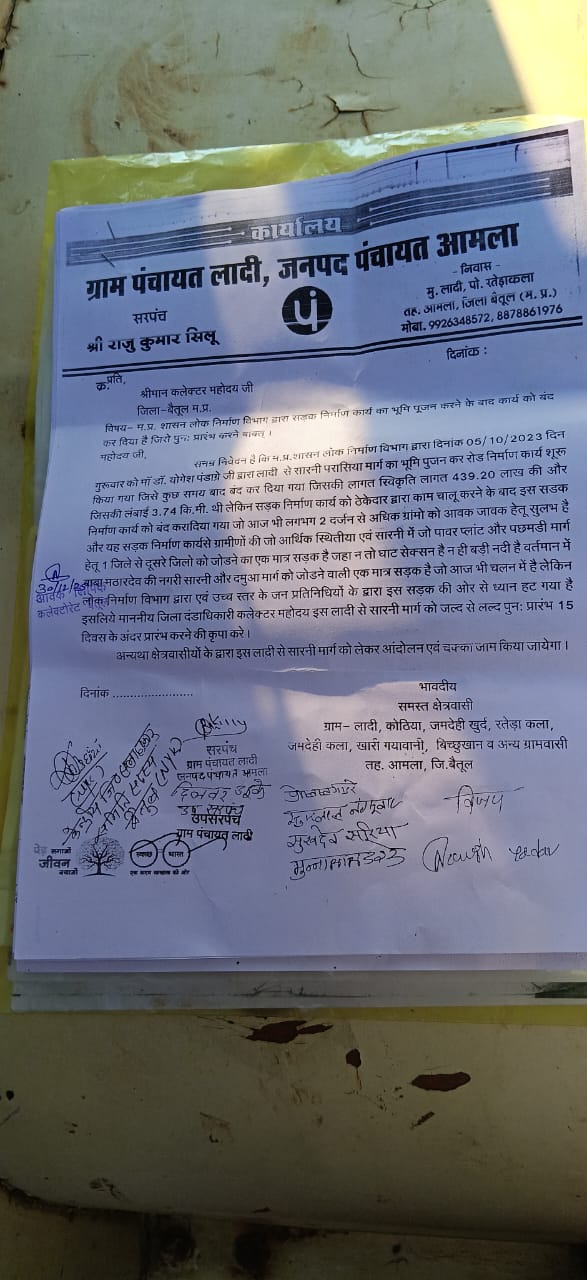 कार्यालय
ग्राम पंचायत लादी, जनपद पंचायत आमला
सरपंच
श्री राजु कुमार सिलू
- निवास -
मु. लादी, पो. रतेड़ाकला
तह. आमला, जिला बैतूल (म. प्र.)
मोबा. 9926348572, 8878861976
क्र.
दिनांक :
प्रति,
श्रीमान कलेक्टर महोदय जी
जिला-बैतूल म.प्र.
विषय- म.प्र. शासन लोक निर्माण विभाग द्वारा सड़क निर्माण कार्य का भूमि पूजन करने के बाद कार्य को बंद
कर दिया है जिसे पुनः प्रारंभ करने बाबत् ।
महोदय जी,
समग्र निवेदन है कि म.प्र.शासन लोक निर्माण विभाग द्वारा दिनांक 05/10/2023 दिन
गुरूवार को माँ डॉ. योगेश पंडाग्रे जी द्वारा लादी से सारनी परासिया मार्ग का भूमि पुजन कर रोड निर्माण कार्य शूरू
किया गया जिसे कुछ समय बाद बंद कर दिया गया जिसकी लागत स्विकृति लागत 439.20 लाख की और
जिसकी लंबाई 3.74 कि.मी. थी लेकिन सड़क निर्माण कार्य को ठेकेदार द्वारा काम चालू करने के बाद इस सडक
निर्माण कार्य को बंद करादिया गया जो आज भी लगभग 2 दर्जन से अधिक ग्रामो को आवक जावक हेतू सुलभ है
और यह सड़क निर्माण कार्यसे ग्रामीणों की जो आर्थिक स्थितीया एवं सारनी में जो पावर प्लांट और पछमडी मार्ग
हेतू 1 जिले से दूसरे जिलो को जोडने का एक मात्र सड़क है जहा न तो घाट सेक्सन है न ही बड़ी नदी है वर्तमान में
बाबा मठारदेव की नगरी सारनी और दमुआ मार्ग को जोडने वाली एक मात्र सड़क है जो आज भी चलन में है लेकिन
लोक निर्माण विभाग द्वारा एवं उच्च स्तर के जन प्रतिनिधियों के द्वारा इस सड़क की ओर से ध्यान हट गया है
इसलिये माननीय जिला दंडाधिकारी कलेक्टर महोदय इस लादी से सारनी मार्ग को जल्द से लल्द पुनः प्रारंभ 15
दिवस के अंदर प्रारंभ करने की कृपा करे ।
अन्यथा क्षेत्रवासीयों के द्वारा इस लादी से सारनी मार्ग को लेकर आंदोलन एवं चक्का जाम किया जायेगा ।
आवक
कलेक्टोरेट
दिनांक ......................
भावदीय
समस्त क्षेत्रवासी
ग्राम- लादी, कोठिया, जमदेही खुर्द, रतेड़ा कला,
जमदेही कला, खारी गयावानी, बिच्छुखान व अन्य ग्रामवासी
तह. आमला, जि.बैतूल
सरपंच
ग्राम पंचायत लादी
जनपद पंचायत आमला
उप सरपंच
उपसरपंच
ग्राम पंचायत लादी
(NYK)
विजय
सुखदेव
yadav
पेड़ लगाओ
जीवन
बचाओ
स्वच्छ भारत
एक कदम स्वच्छता की ओर